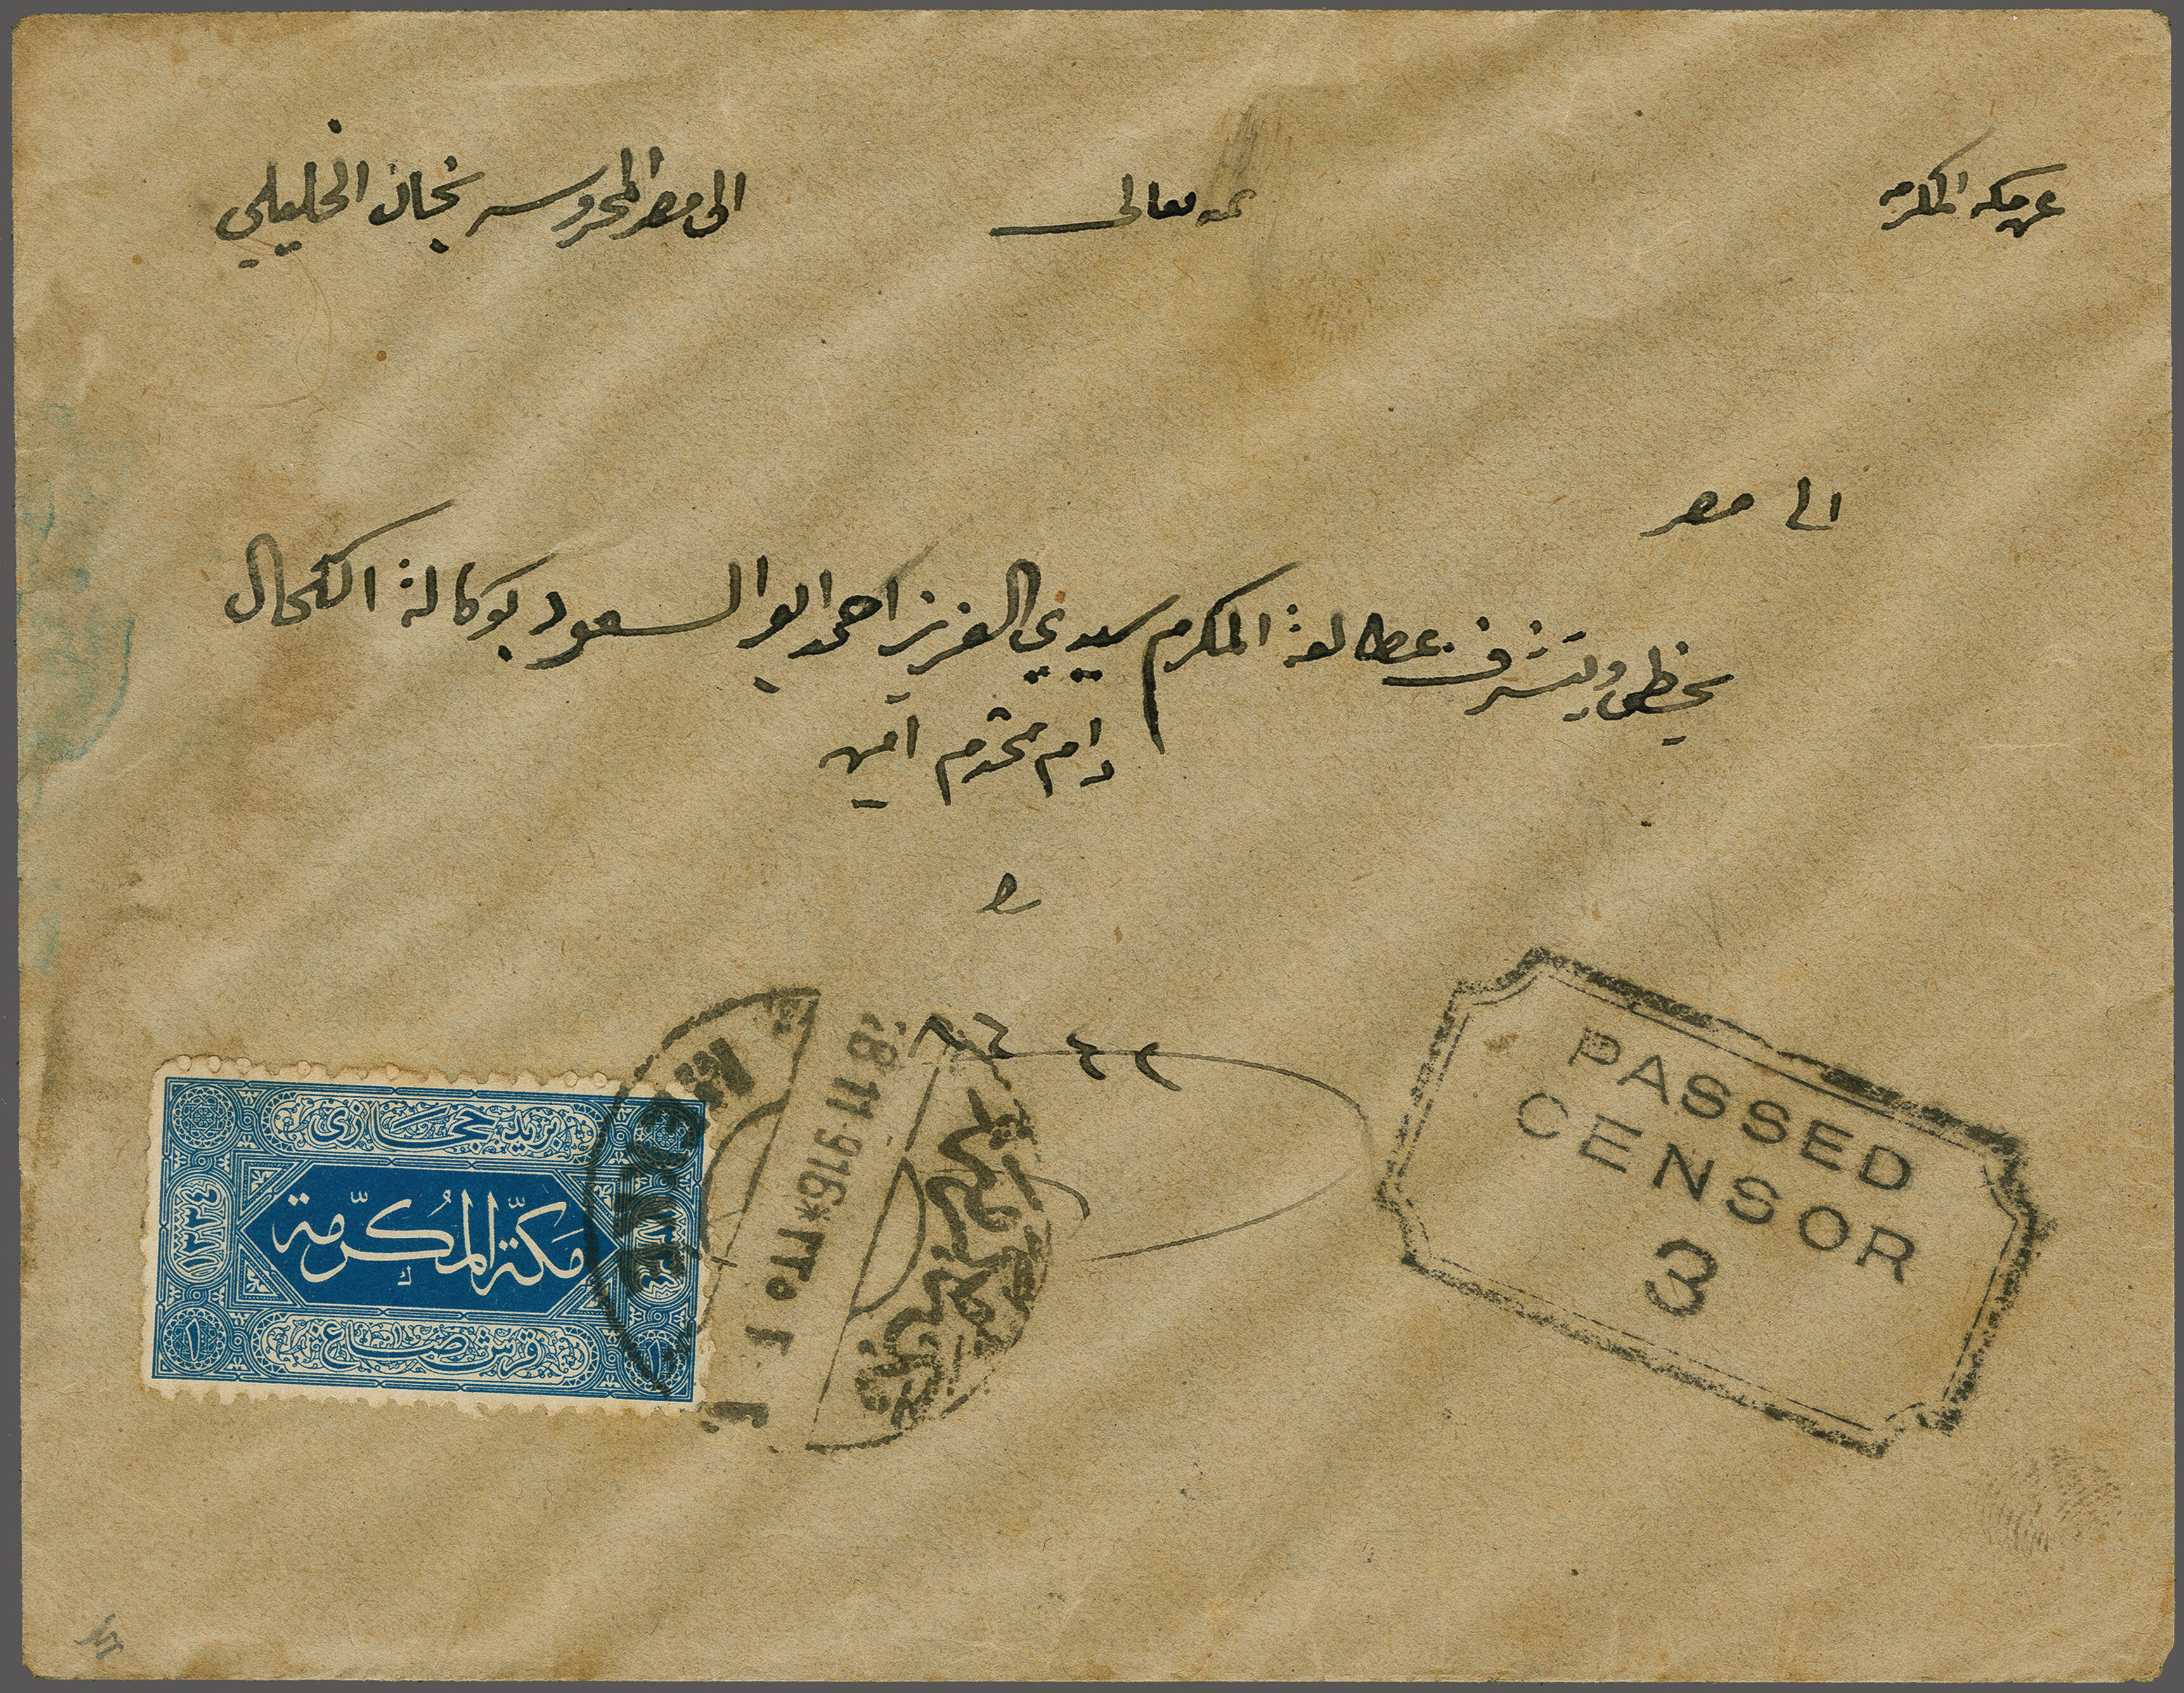 عن مكه المكرمه
تعالى
الى مصر المحروسه بخان الخليلي
الى مصر
يحظى ويتشرف بمطالعة المكرم سيدي العزيز احمد ابو السعود بوكالة الكحال
دام محترم امين
٨٦٤٢
PASSED
CENSOR
3
بريد حجازي
١٣٣٤ مكة المكرمة ١٣٣٤
١ قرش صاغ ١
11·916*